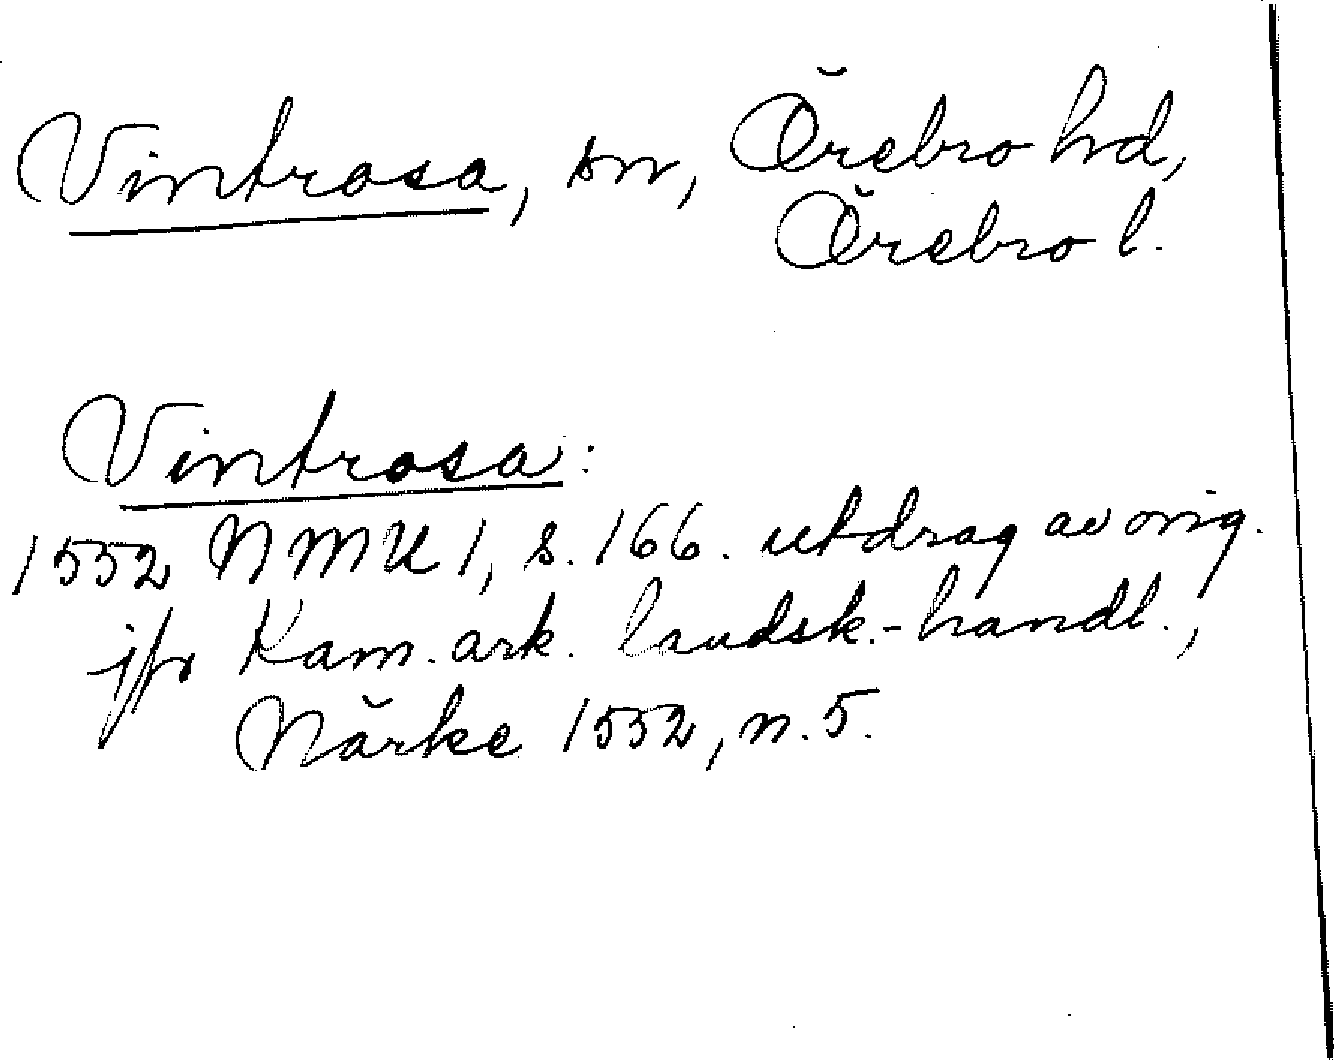 Vintrosa, sn, Örebro hd,
Örebro l.
Vintrosa:
1552 NMU 1, s. 166. utdrag av orig.
jfr Kam. ark. landsk.-handl.,
Närke 1552, n. 5.